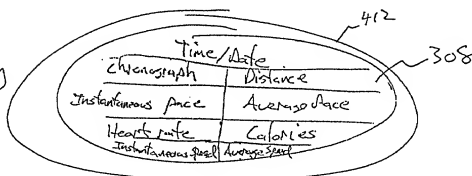 412
Time/Date
308
Chronograph Distance
Instantaneous pace Average Pace
Heart rate Calories
Instantaneous Speed Average Speed